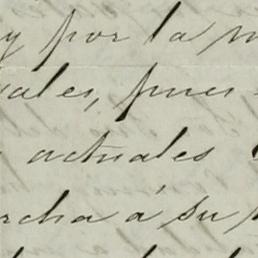 y por la
uales, pues
actuales
rcha á su